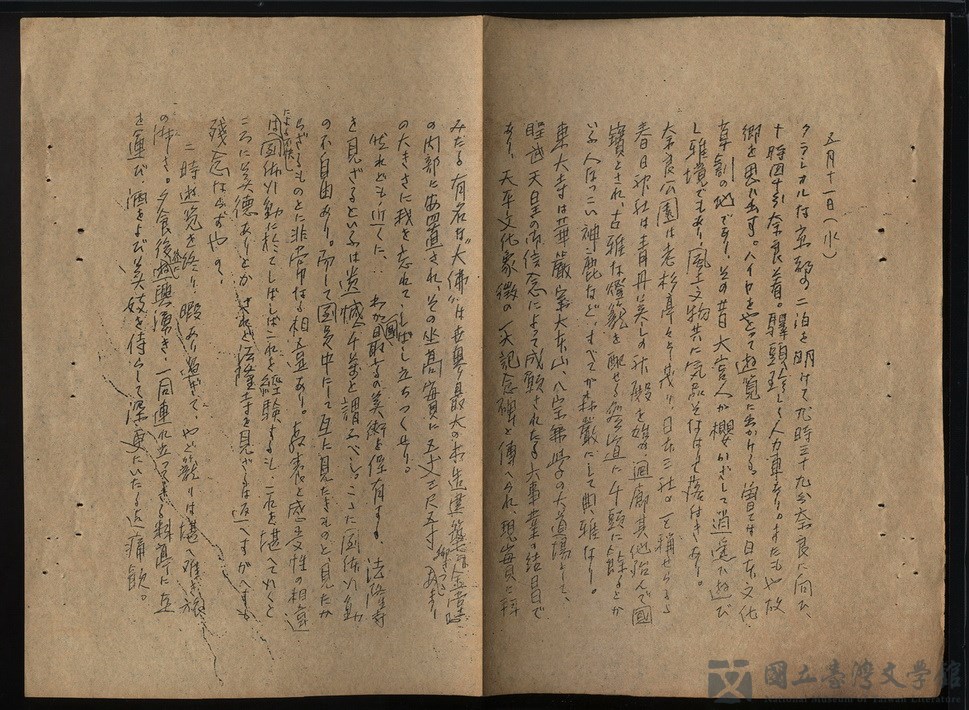 五月十一日(水)
クラシオルな京都の二泊を明けて九時三十九分奈良に向ひ、
十時四十分奈良着。驛頭珍らしく人力車あり。またもや故
郷を思ひ出す。ハイヤをやとつて遊覧に出かける。曽ては日本文化
草創の地であり、その昔大宮人が櫻かざして逍遥び遊び
し雅境でもあり、風土文物共に気品そなはりせ落はきあり。
奈良公園は老杉亭々と茂り日本三社の一と稱せらるる
春日神社は青丹美しの神殿を始め廻廊其他殆んで國
寶とされ、古雅な燈籠を配せる参道に千頭に餘るとか
いふ人なつこい神鹿など、すべてが森厳にして典雅なり。
東大寺は華厳宗大本山、八宗兼学の大道場にして、
聖武天皇の御信念によつて成願された大事業が給日で
あり、天平文化象徴の一大記念碑と傳へられ、現實に拝
みたる有名な"大佛"は世界最大の木造建築 金堂
の内部に安置され、その坐高實に五丈三尺五寸 あまり
の大きさに我を忘れて、しばし立ちつくせり。
然れども、近くに、わが國最高の美術を保有する、法隆寺
を見ざるといふは遺憾千萬と謂ふべし。ここに団体行動
の不自由あり。而して團員中にして互に見たきものと見たか
らざるものとに非常なる相違あり。教養と感受性の相違
による所以。
団体行動に於てしばしばこれを経験するも、これを堪へていくと
ころに美徳ありとか されど法隆寺を見ざるは返へすがへすも
残念ならずやの。
二時遊覧を終り、暇あり過ぎて、やど籠りは堪へ難き旅
の淋しさ。夕食後 感興湧き、一同連れ立ちてある料亭に並
を運び、酒をよび美妓を侍らして深更にいたる迄痛飲。
國立臺灣文學館
National Museum of Taiwan Literature